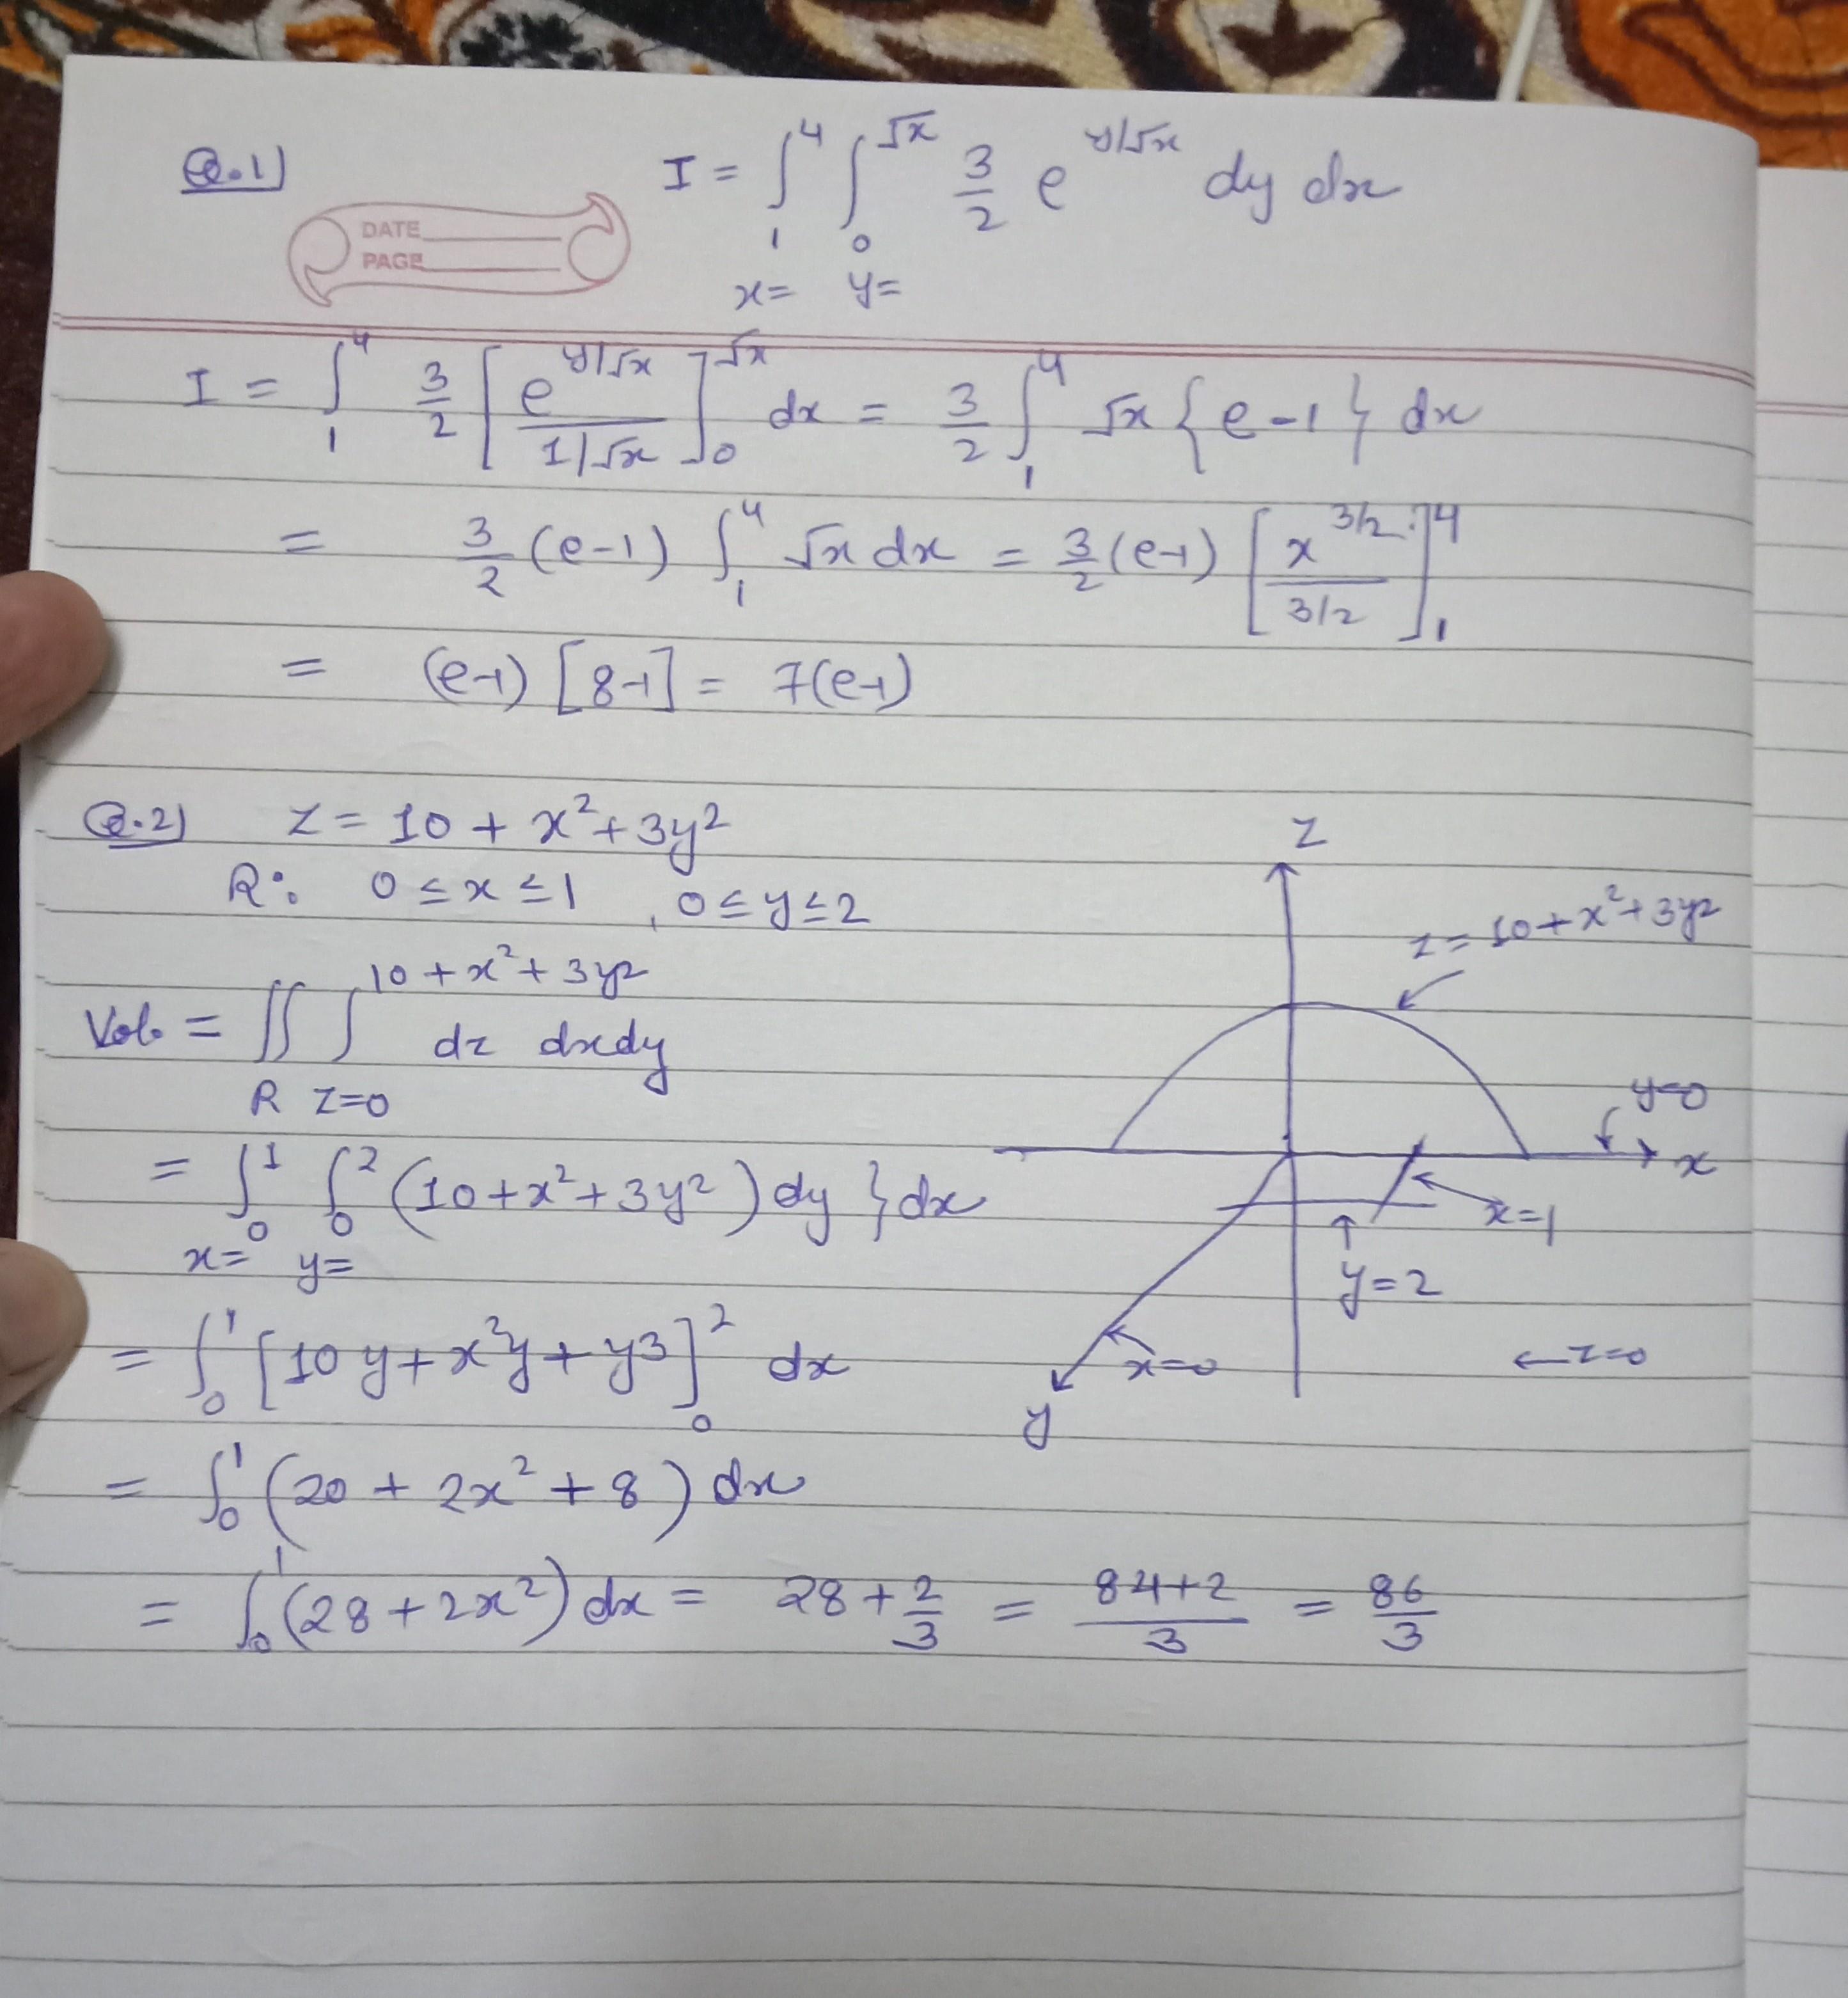 Q.1) I = ∫₁⁴ ∫₀^√x 3/2 e^(y/√x) dy dx
DATE
PAGE
x= y=
I = ∫₁⁴ 3/2 [e^(y/√x) / 1/√x]₀^√x dx = 3/2 ∫₁⁴ √x {e-1} dx
= 3/2 (e-1) ∫₁⁴ √x dx = 3/2 (e-1) [x^(3/2) / 3/2]₁⁴
= (e-1) [8-1] = 7(e-1)
Q.2) z = 10 + x² + 3y²
R: 0 ≤ x ≤ 1 , 0 ≤ y ≤ 2
Vol. = ∬ ∫ 10 + x² + 3y² dz dxdy
R z=0
= ∫₀¹ ∫₀² (10+x²+3y²) dy } dx
x= y=
= ∫₀¹ [10y + x²y + y³]₀² dx
= ∫₀¹ (20 + 2x² + 8) dx
= ∫₀¹ (28 + 2x²) dx = 28 + 2/3 = 84+2/3 = 86/3
z
z = 10 + x² + 3y²
y=0
x
x=1
y=2
x=0
z=0
y